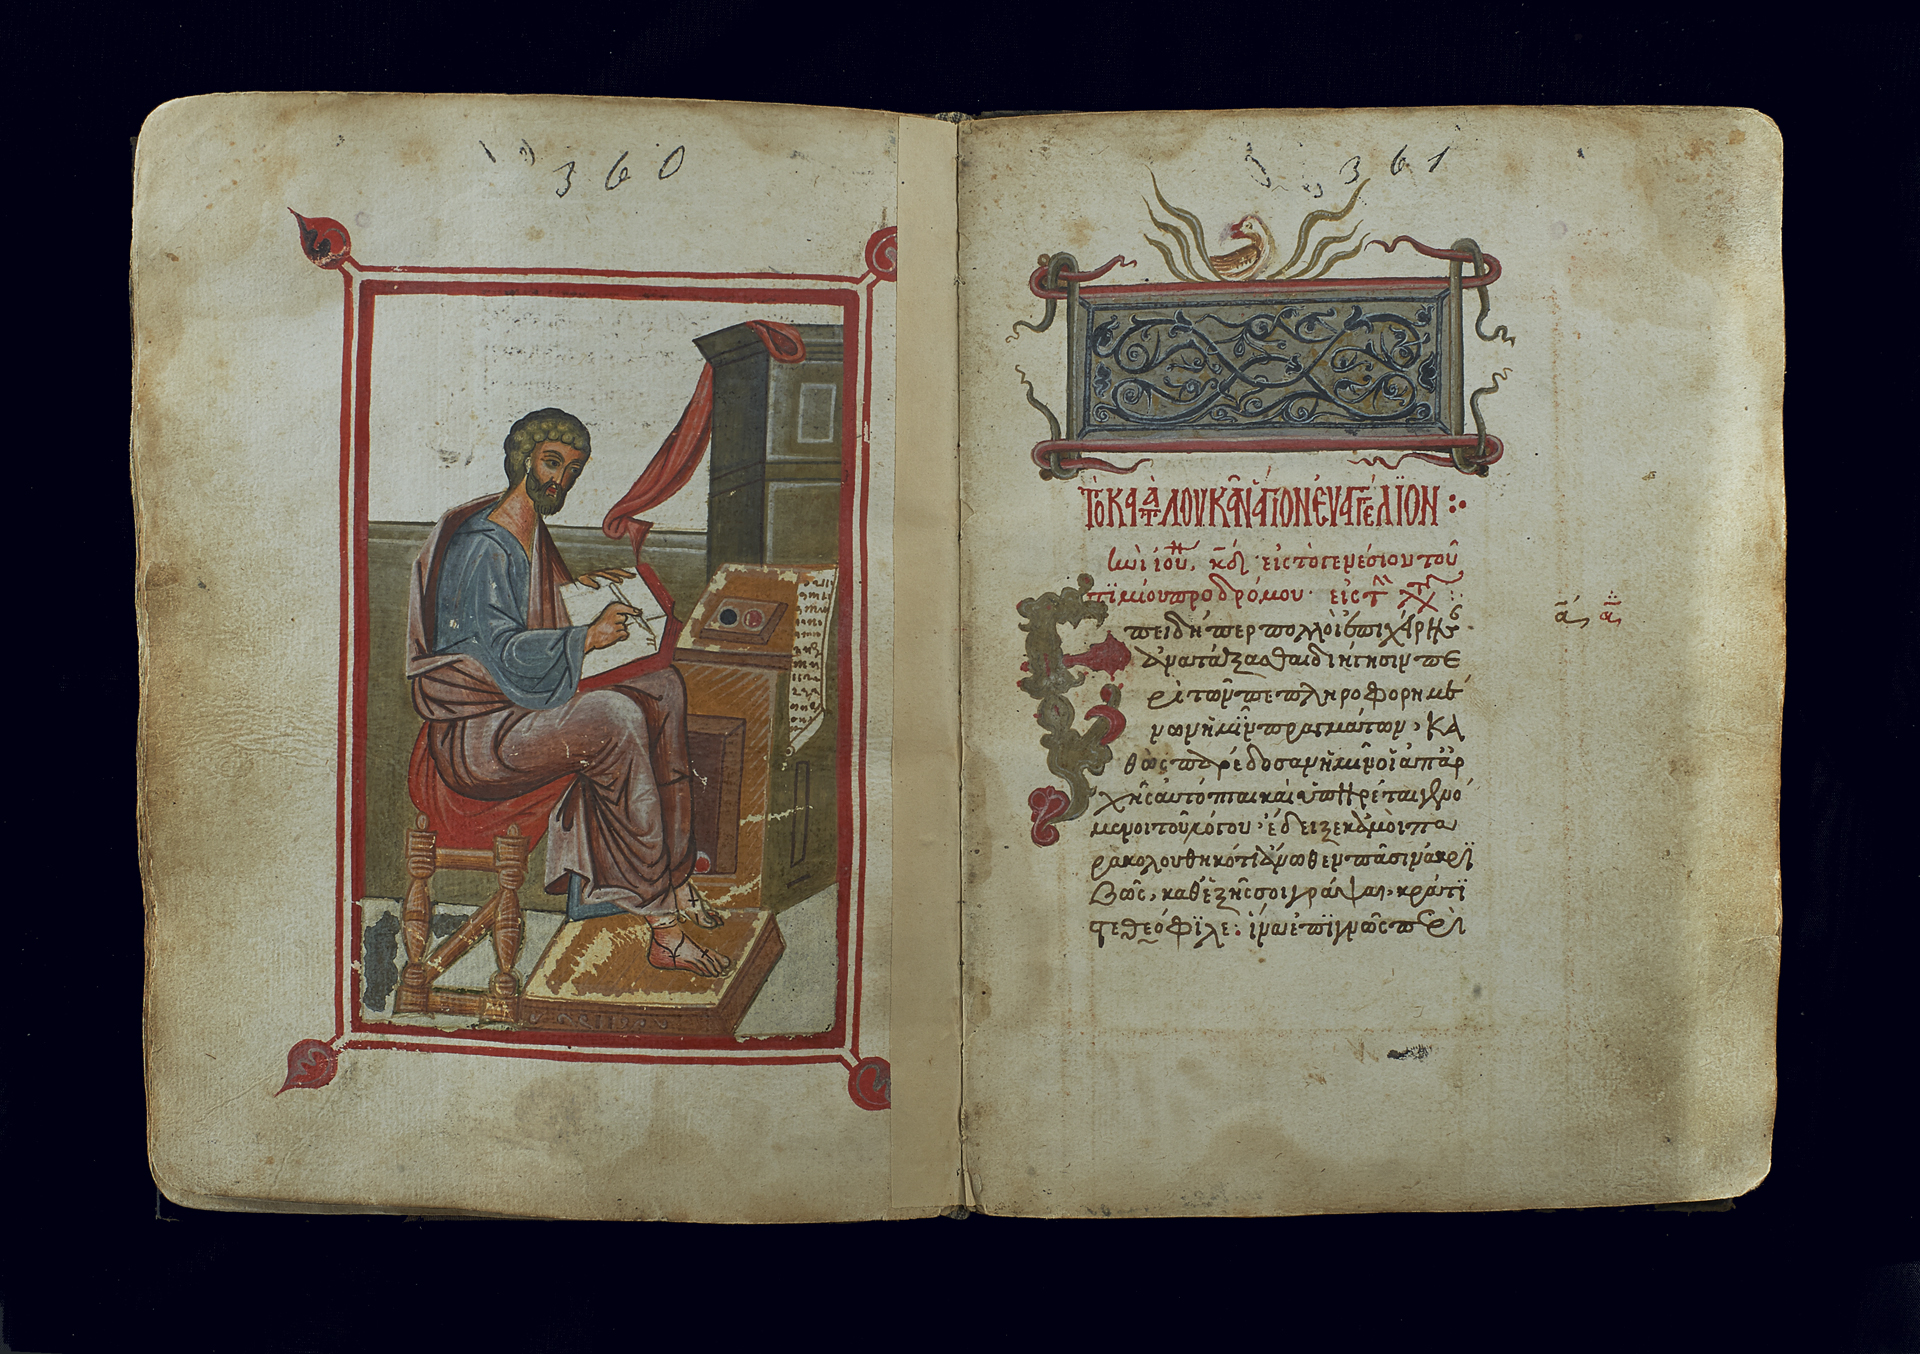 360
361
Τὸ κατὰ Λουκᾶν ἅγιον εὐαγγέλιον :·
ἰουν, κδ, εἰς τὸ γενέσιον τοῦ
τιμίου προδρόμου· εἰς τ
Ἐπειδήπερ πολλοὶ ἐπεχείρησ
ἀνατάξασθαι διήγησιν πε
ρὶ τῶν πεπληροφορημέ
νων ἡμῖν πραγμάτων, κα
θὼς παρέδοσαν ἡμῖν οἱ ἀπαρ
χῆς αὐτόπται καὶ ὑπηρέται γενό
μενοι τοῦ λόγου· ἔδειξε κἀμοὶ πα
ρακολουθηκότι ἄνωθεν πᾶσιν ἀκρϊ
βῶς, καθεξῆς σοι γράψαι, κράτϊ
στε θεόφϊλε: ἵνα ἐπϊγνῶς περὶ